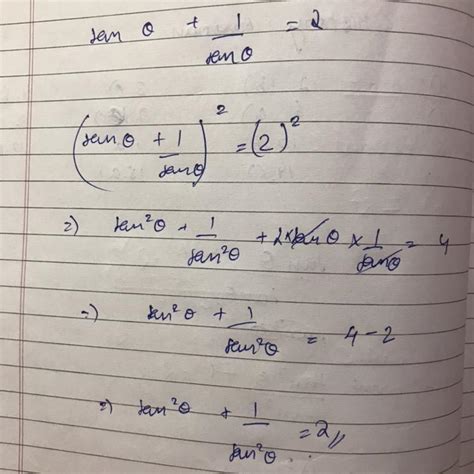 tan θ + 1/tanθ = 2
(tanθ + 1/tanθ)² = (2)²
⇒) tan²θ + 1/tan²θ + 2×tanθ × 1/tanθ = 4
⇒) tan²θ + 1/tan²θ = 4-2
⇒) tan²θ + 1/tan²θ = 2//